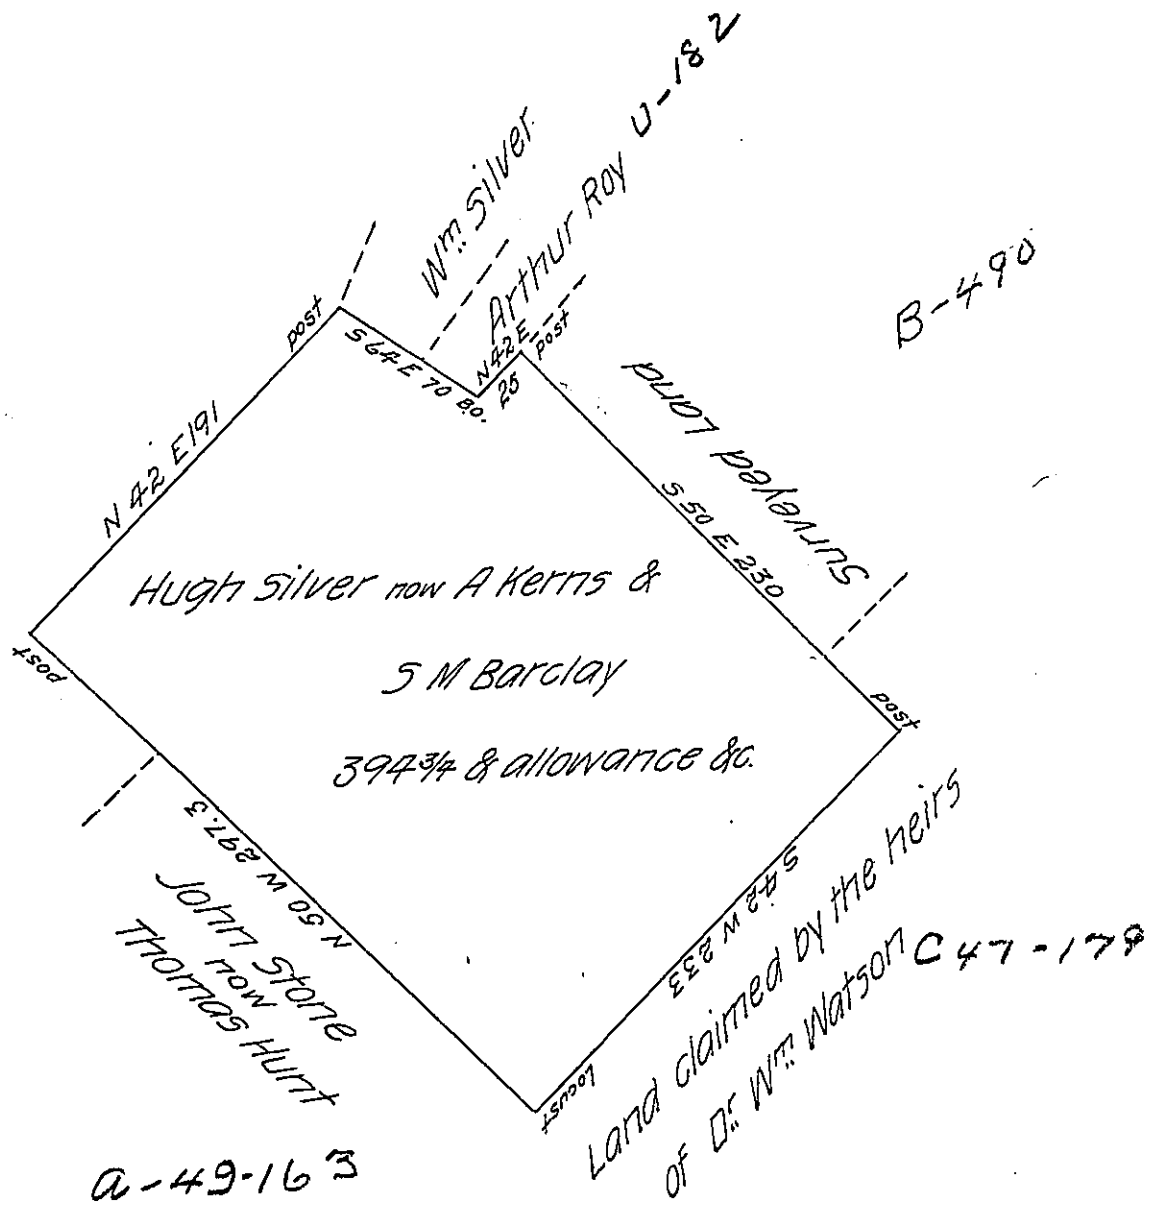 U-182
Wm. Silver.
Arthur Roy
B-490
post
S 64 E 70
B.O.
N 42 E
25
post
Surveyed Land
N 42 E 191
S 50 E 230
Hugh Silver now A Kerns &
S M Barclay
394 3/4 & allowance &c.
post
post
N 50 W 297.3
John Stone
now
Thomas Hunt
S 42 W 233
Locust
Land claimed by the heirs
of Dr. Wm. Watson
C 47-179
a-49-163